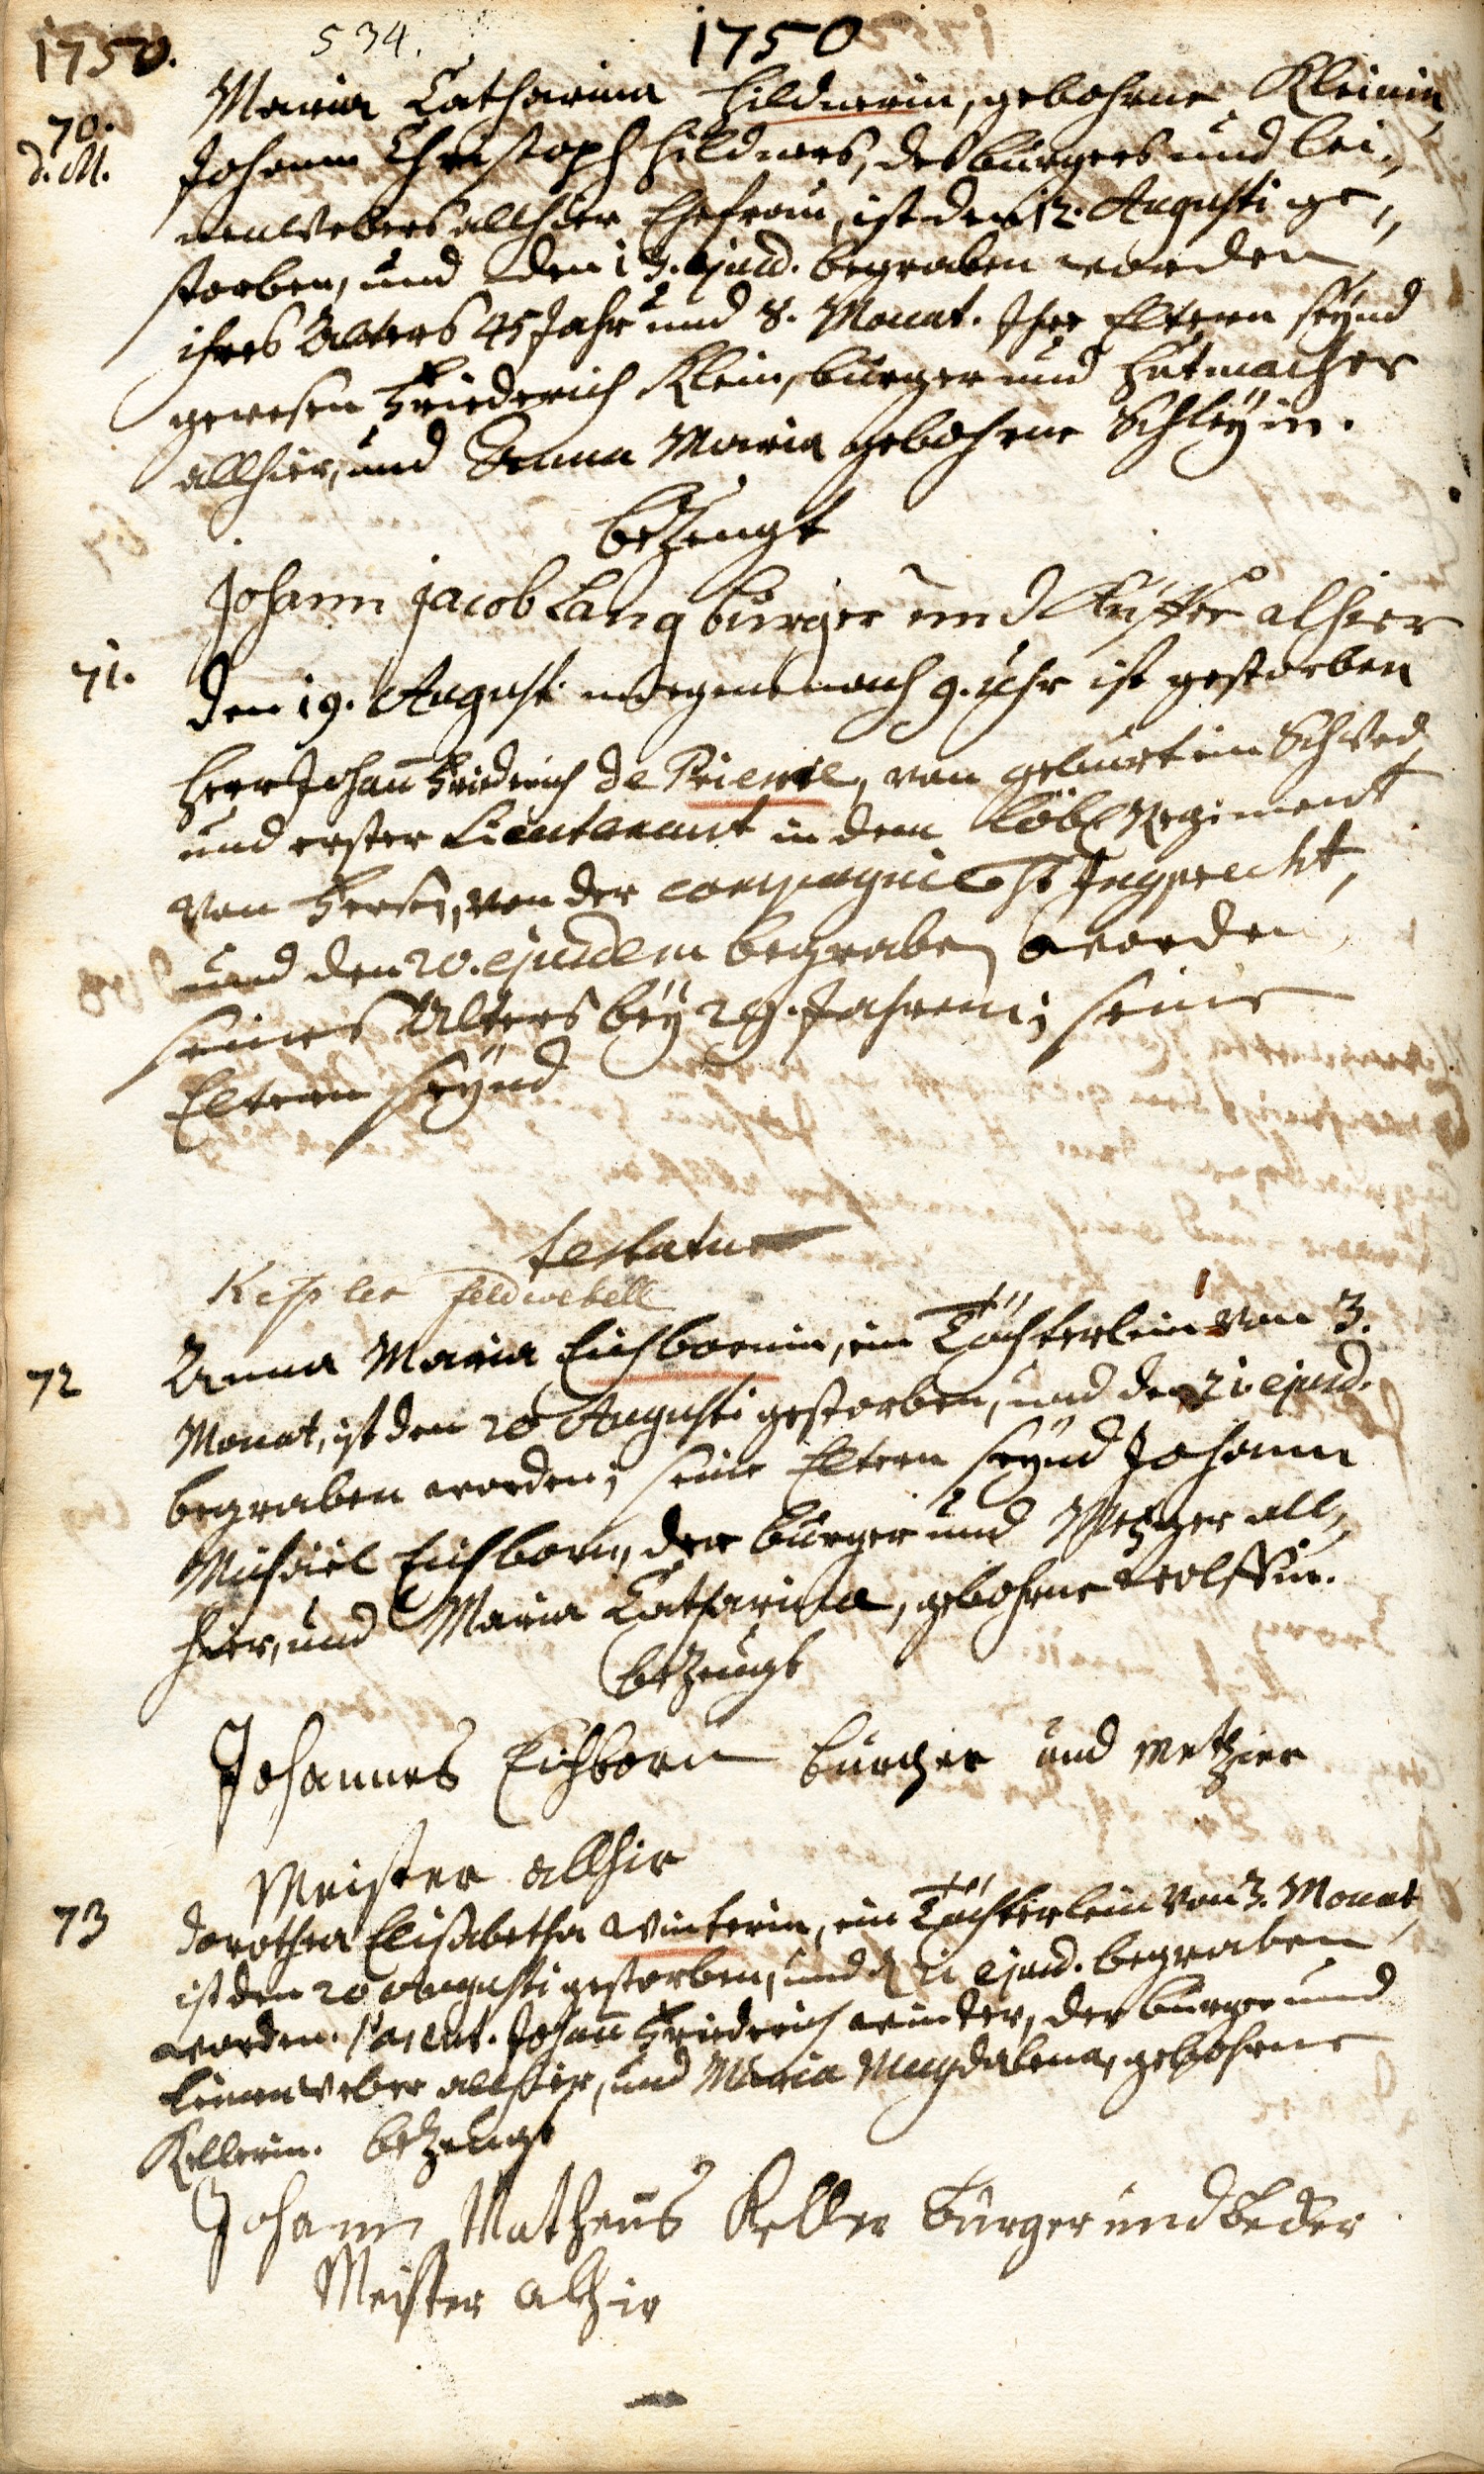 1750. 534. 1750
70. Maria Catharina Hildnerin, gebohrne Kleinin,
d. M. Johann Christoph Hildners, des burgers und lei„
nenwebers allhier Ehefrau, ist den 12. Augusti ge„
storben, und den 13. ejusd. begraben worden
ihres Alters 45 Jahr und 8. Monat. Ihre Eltern seynd
gewesen Friederich Klein, burger und Hutmacher
allhier, und Anna Maria gebohrne Schleyin.
bezeugt
Johann Jacob Lang burger und alhier
71. Den 19. August. morgens nach 9. Uhr ist gestorben
Herr Johañ Friedrich de, von geburt ein Schwed,
und erster Lieutenant in dem löbl. Regiment
von, von der compagnie
und den 20. ejusdem begraben worden,
seines Alters bey 29. Jahren; seine
Eltern seynd
testatur
Kessler feldwebell
72 Anna Maria Eichbornin, ein Töchterlein von 3.
Monat, ist den 20 Augusti gestorben, und den 21 ejusd.
begraben worden; seine Eltern seynd Johann
Michael Eichborn, der burger und Metzger all„
hier, und Maria Catharina, gebohrne Wolffin.
bezeugt
Johannes Eichborn burger und metzger
Meister allhir
73 Dorothea Elisabetha Winterin, ein Töchterlein von 3. Monat,
ist den 20 Augusti gestorben, und d. 21 ejusd. begraben
worden. Parent. Johañ Friederich Winter, der burger und
Leinenweber allhier, und Maria Magdalena, gebohrne
Kellerin. bezeugt
Johann Matheus Keller burger und
Meister alhir